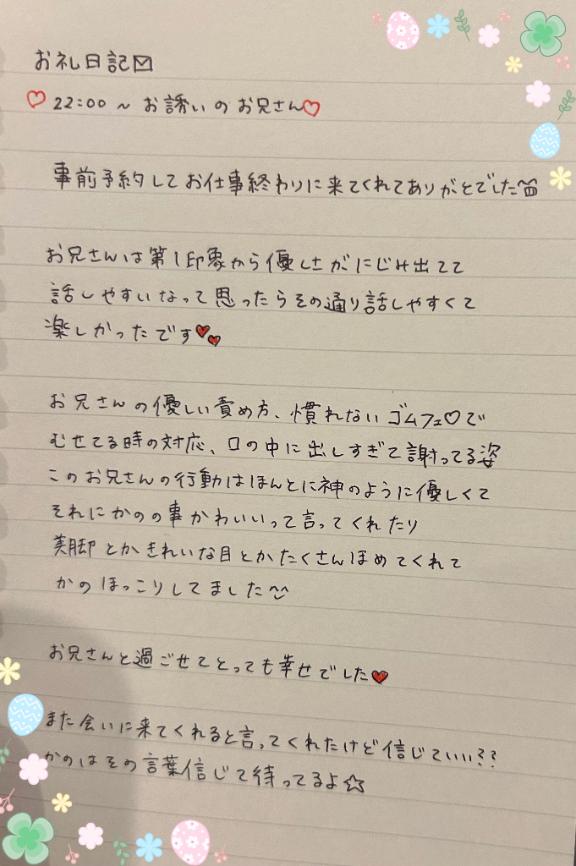 お礼日記✉
♡22:00～お誘いのお兄さん♡
事前予約してお仕事終わりに来てくれてありがとでした
お兄さんは第1印象から優しさがにじみ出てて
話しやすいなって思ったらその通り話しやすくて
楽しかったです♥♥
お兄さんの優しい責め方、慣れないゴムフェ♡で
むせてる時の対応、口の中に出しすぎて謝ってる姿
このお兄さんの行動はほんとに神のように優しくて
それにかのの事かわいいって言ってくれたり
美脚とかきれいな目とかたくさんほめてくれて
かのほっこりしてました
お兄さんと過ごせてとっても幸せでした♥
また会いに来てくれると言ってくれたけど信じていい??
かのはその言葉信じて待ってるよ☆